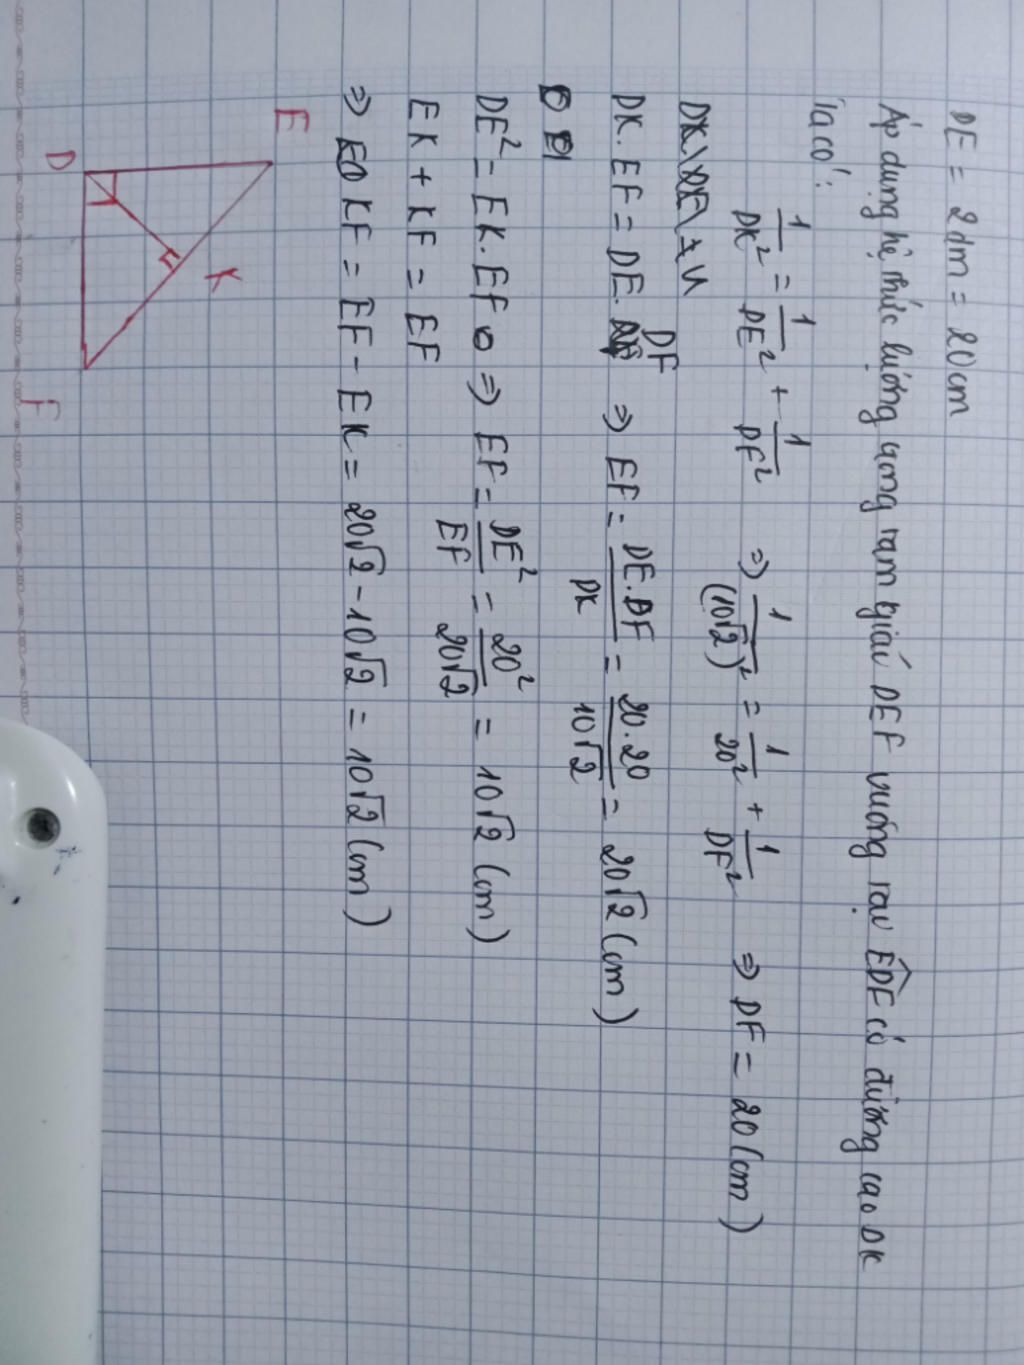 DE = 2dm = 20cm
Áp dụng hệ thức lượng trong tam giác DEF vuông tại EDF có đường cao DK
Ta có:
1/DK² = 1/DE² + 1/DF² ⇒ 1/(10√2)² = 1/20² + 1/DF² ⇒ DF = 20(cm)
DK . EF = DE . DF ⇒ EF = DE.DF/DK = 20.20/10√2 = 20√2 (cm)
DE² = EK . EF ⇒ EF = DE²/EF = 20²/20√2 = 10√2 (cm)
EK + KF = EF
⇒ KF = EF - EK = 20√2 - 10√2 = 10√2 (cm)
E
K
D
F